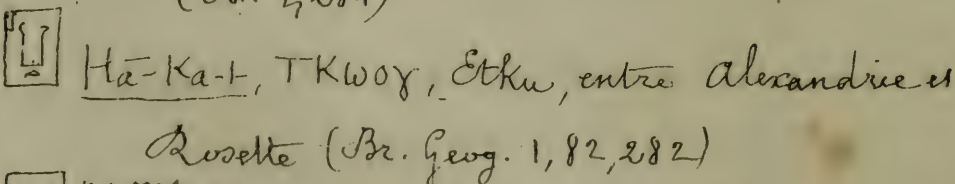 Hā-Ka-t, ΤΚωογ, Etku, entre Alexandrie et
Rosette (Br. Geog. 1, 82, 282)